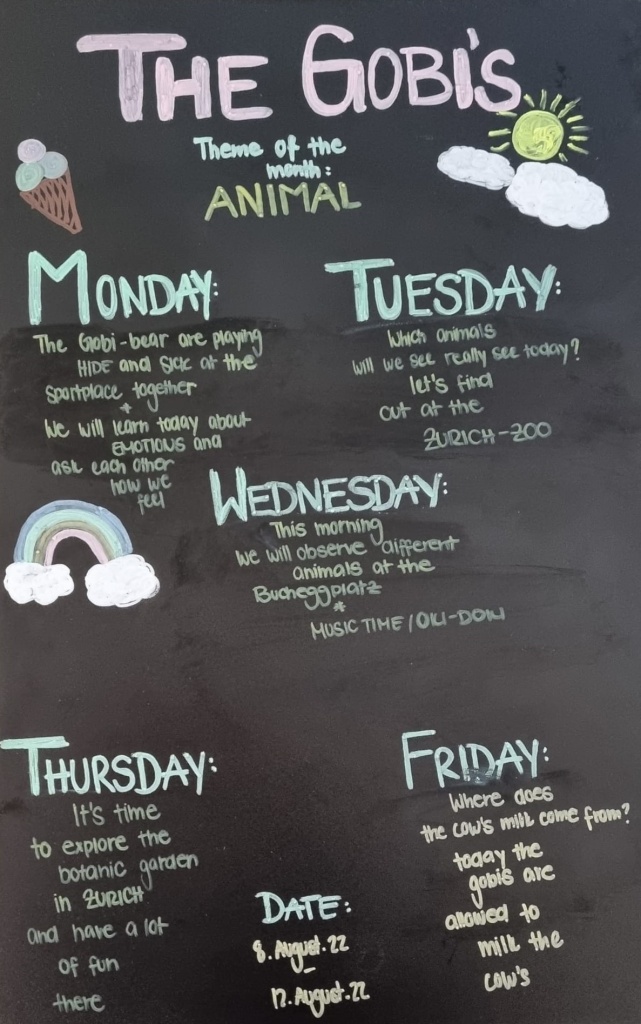 THE GOBI'S
Theme of the
month:
ANIMAL
MONDAY:
The Gobi-bear are playing
HIDE and SICK at the
sportplace together
*
We will learn today about
EMOTIONS and
ask each other
how we
feel
TUESDAY:
Which animals
will we see really see today?
let's find
out at the
ZURICH-ZOO
WEDNESDAY:
This morning
we will observe different
animals at the
Bucheggplatz
*
MUSIC TIME / OLI-DOLI
THURSDAY:
It's time
to explore the
botanic garden
in ZURICH
and have a lot
of fun
there
FRIDAY:
Where does
the cow's milk come from?
today the
gobis are
allowed to
milk the
cow's
DATE:
8. August. 22
-
12. August. 22